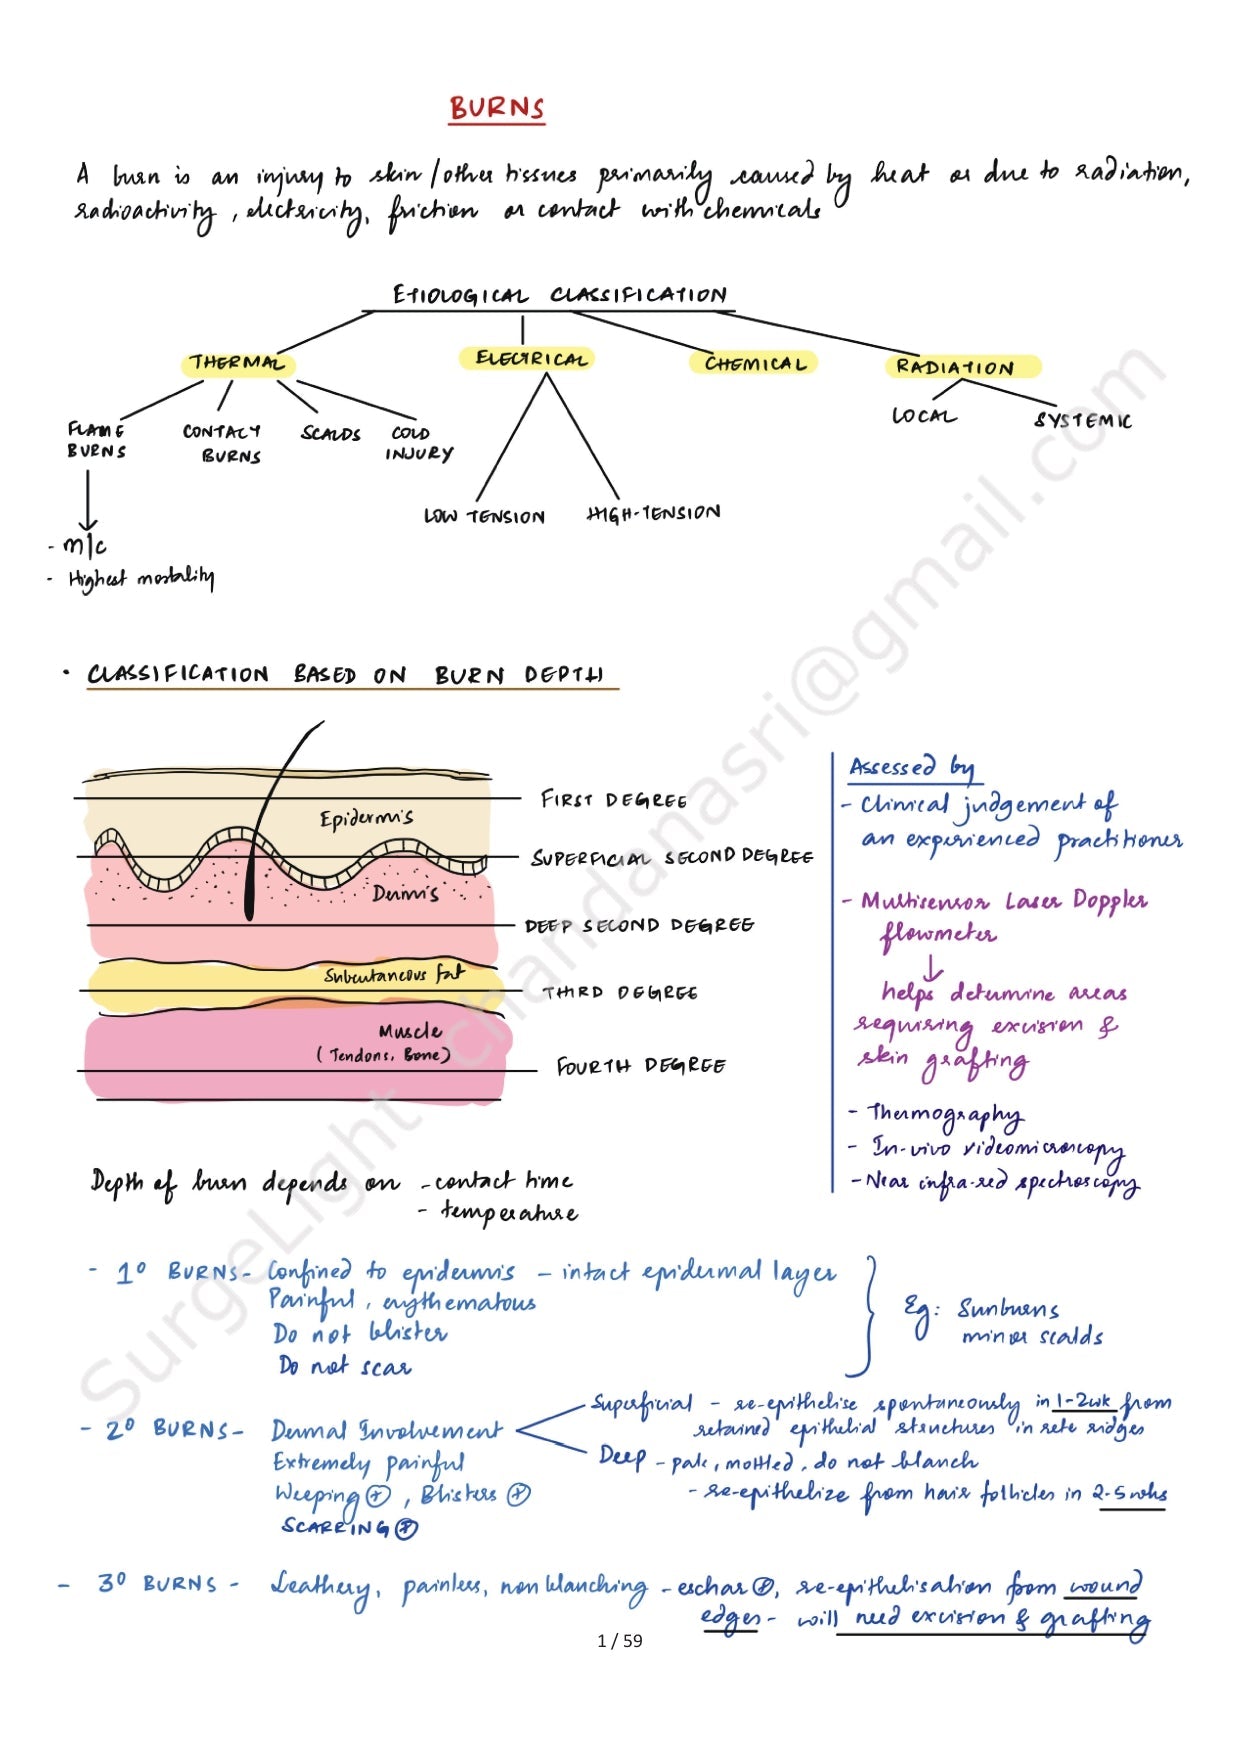 BURNS
A burn is an injury to skin/other tissues primarily caused by heat or due to radiation,
radioactivity, electricity, friction or contact with chemicals
ETIOLOGICAL CLASSIFICATION
THERMAL
ELECTRICAL
CHEMICAL
RADIATION
FLAME
BURNS
CONTACT
BURNS
SCALDS
COLD
INJURY
LOCAL
SYSTEMIC
LOW TENSION
HIGH-TENSION
- m/c
- Highest mortality
• CLASSIFICATION BASED ON BURN DEPTH
Epidermis
Dermis
Subcutaneous fat
Muscle
(Tendons, Bone)
FIRST DEGREE
SUPERFICIAL SECOND DEGREE
DEEP SECOND DEGREE
THIRD DEGREE
FOURTH DEGREE
Assessed by
- Clinical judgement of
an experienced practitioner
- Multisensor Laser Doppler
flowmeter
↓
helps determine areas
requiring excision &
skin grafting
- Thermography
- In-vivo videomicroscopy
- Near infra-red spectroscopy
Depth of burn depends on - contact time
- temperature
- 1° BURNS - Confined to epidermis - intact epidermal layer
Painful, erythematous
Do not blister
Do not scar
Eg: Sunburns
minor scalds
- 2° BURNS - Dermal Involvement
Extremely painful
Weeping ⊕, Blisters ⊕
SCARRING ⊕
Superficial - re-epithelise spontaneously in 1-2wk from
retained epithelial structures in rete ridges
Deep - pale, mottled, do not blanch
- re-epithelize from hair follicles in 2-5 wks
- 3° BURNS - Leathery, painless, non blanching - eschar ⊕, re-epithelisation from wound
edges - will need excision & grafting
1 / 59
SurgeLight chandanasri@gmail.com